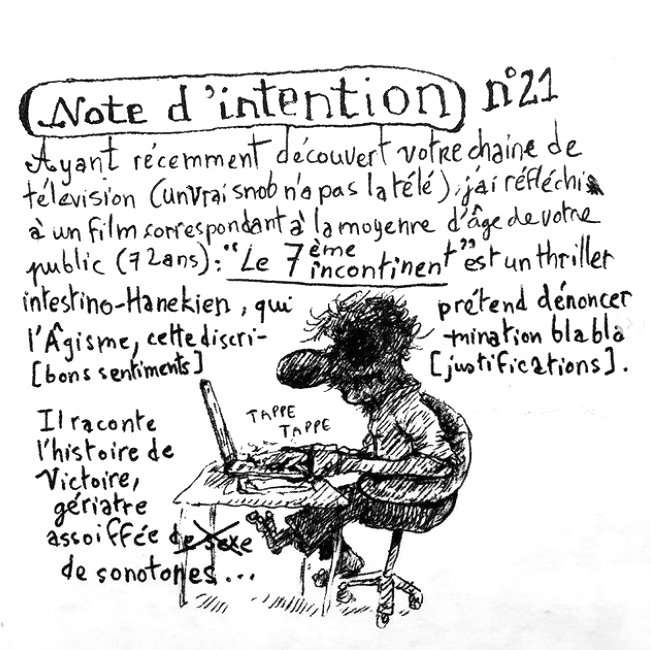 Note d'intention n°21
Ayant récemment découvert votre chaine de
télévision (un vrai snob n'a pas la télé), j'ai réfléchi
à un film correspondant à la moyenne d'âge de votre
public (72ans): "Le 7ème incontinent" est un thriller
intestino-Hanekien, qui prétend dénoncer
l'Âgisme, cette discri- -mination bla bla
[bons sentiments] [justifications].
TAPPE
TAPPE
Il raconte
l'histoire de
Victoire,
gériatre
assoiffée de sexe
de sonotones...